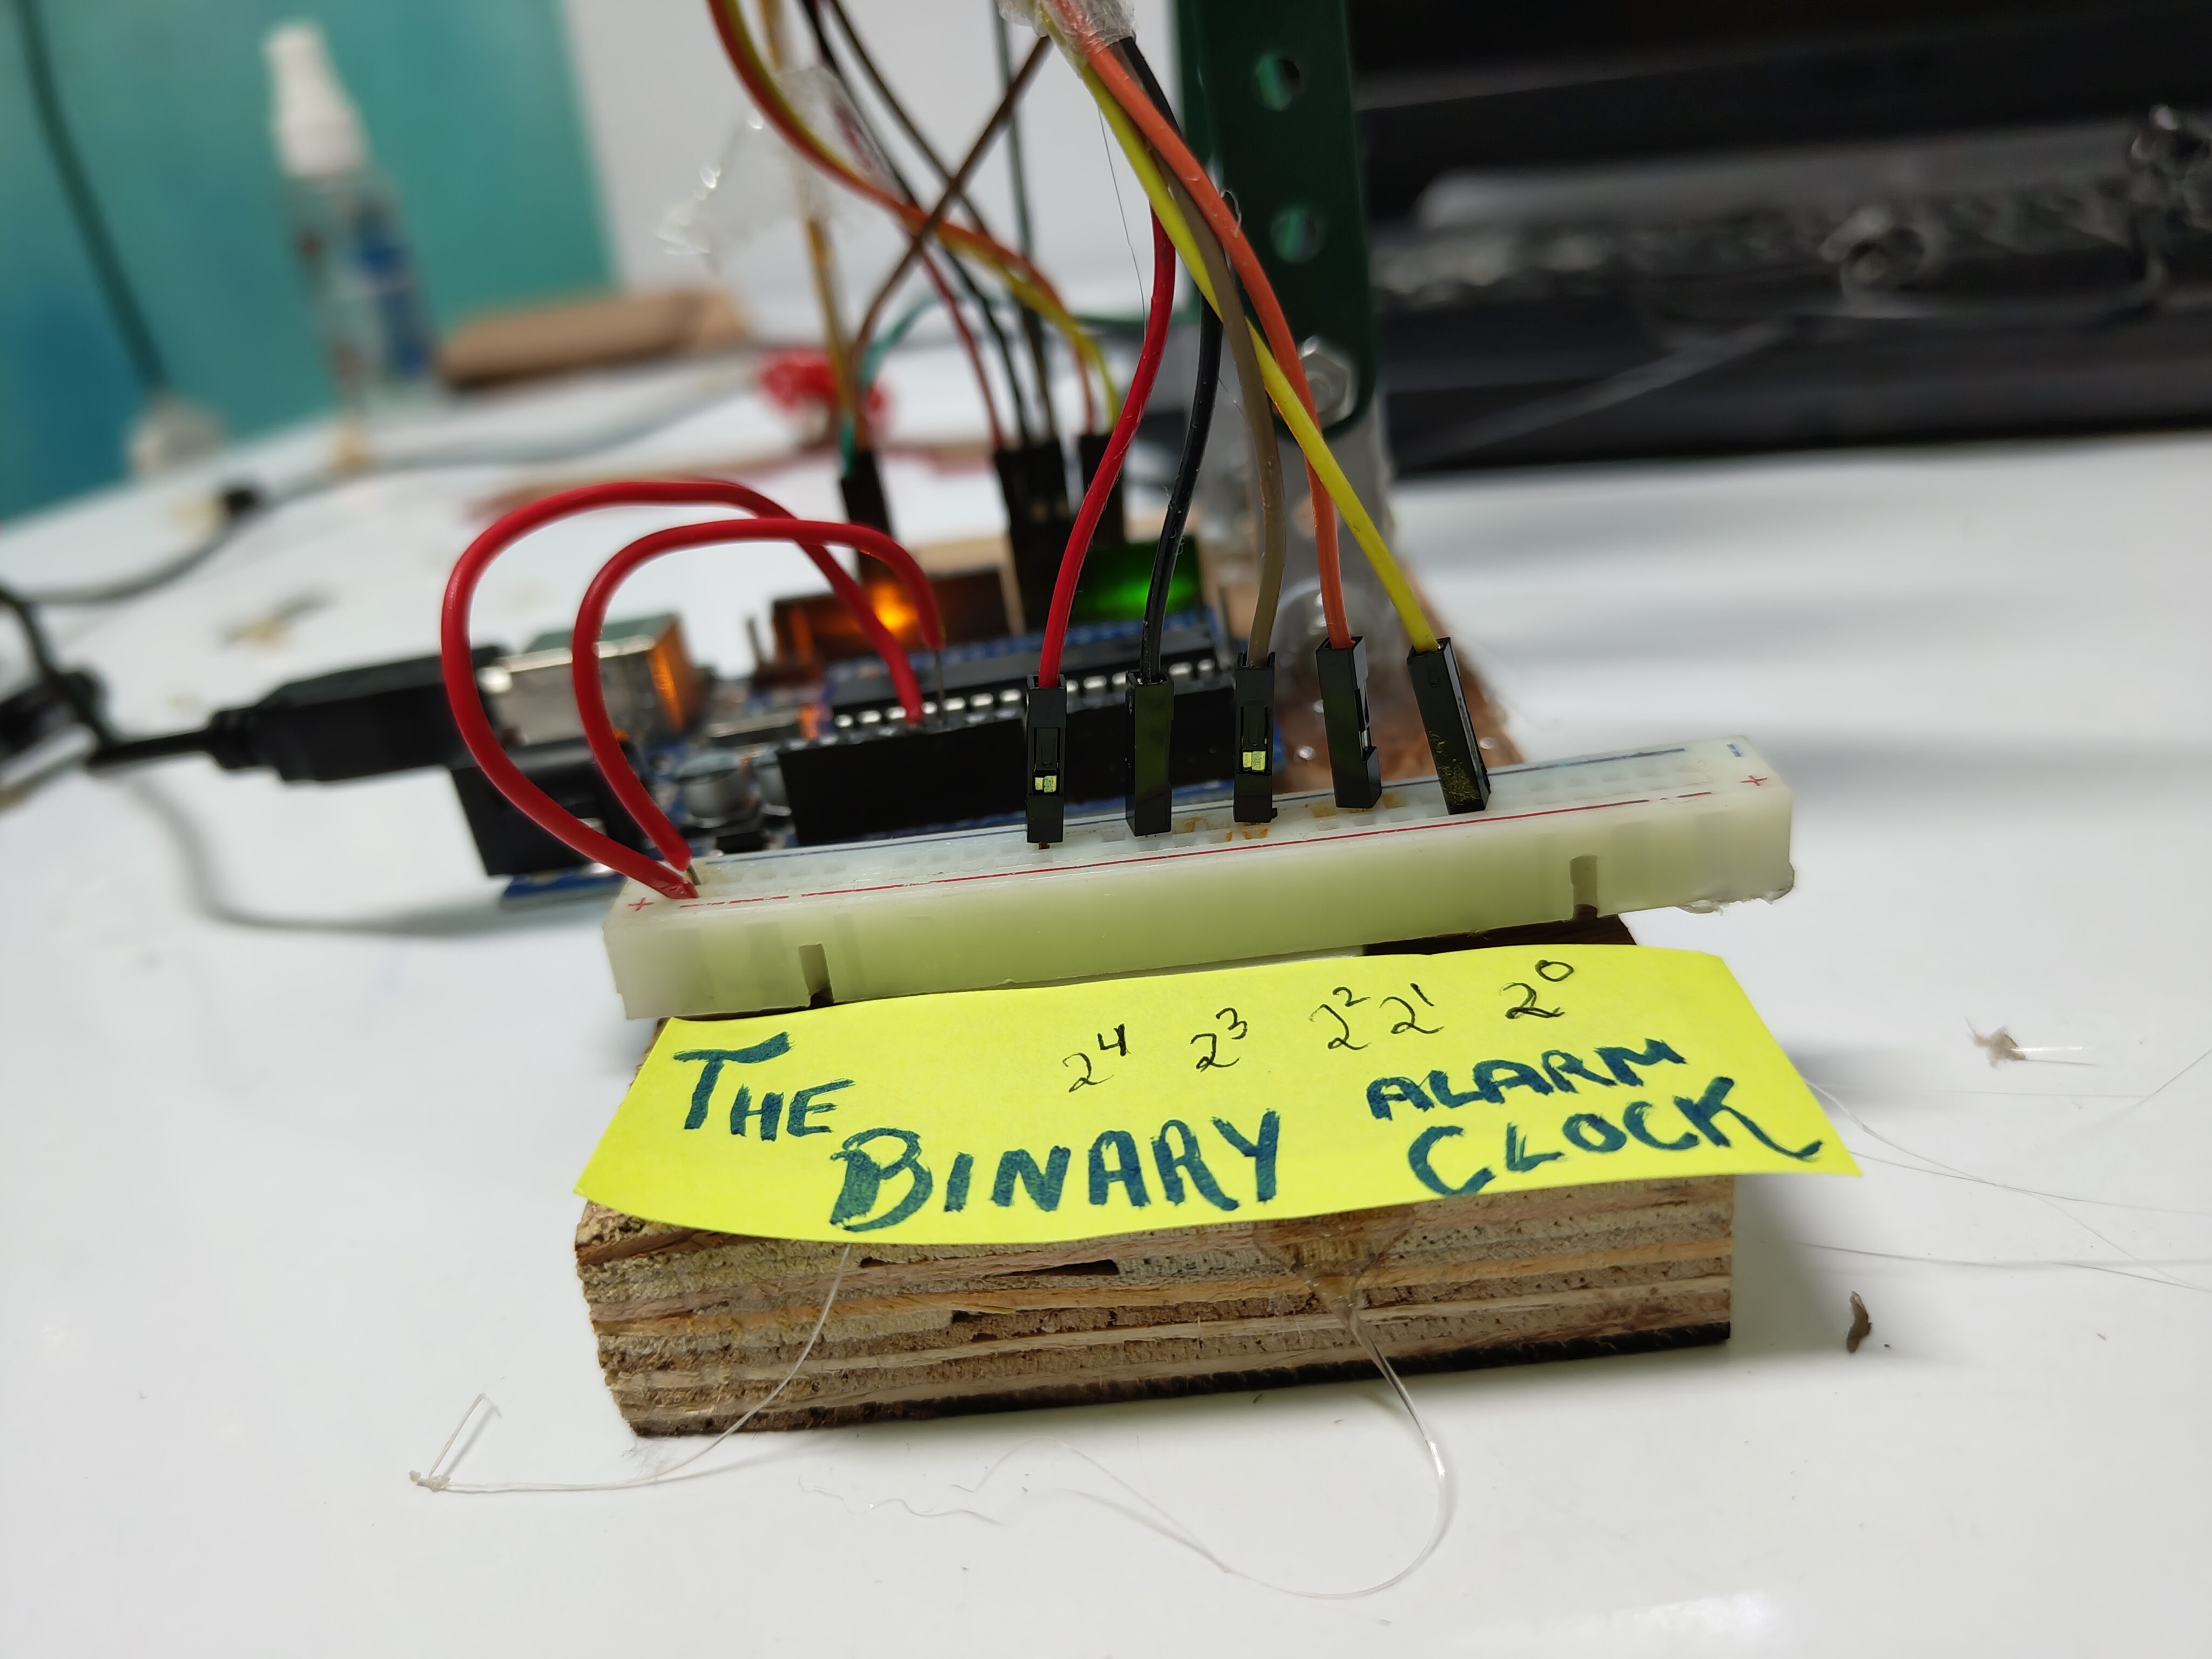 2⁴ 2³ 2² 2¹ 2⁰
THE BINARY ALARM
CLOCK
+
+